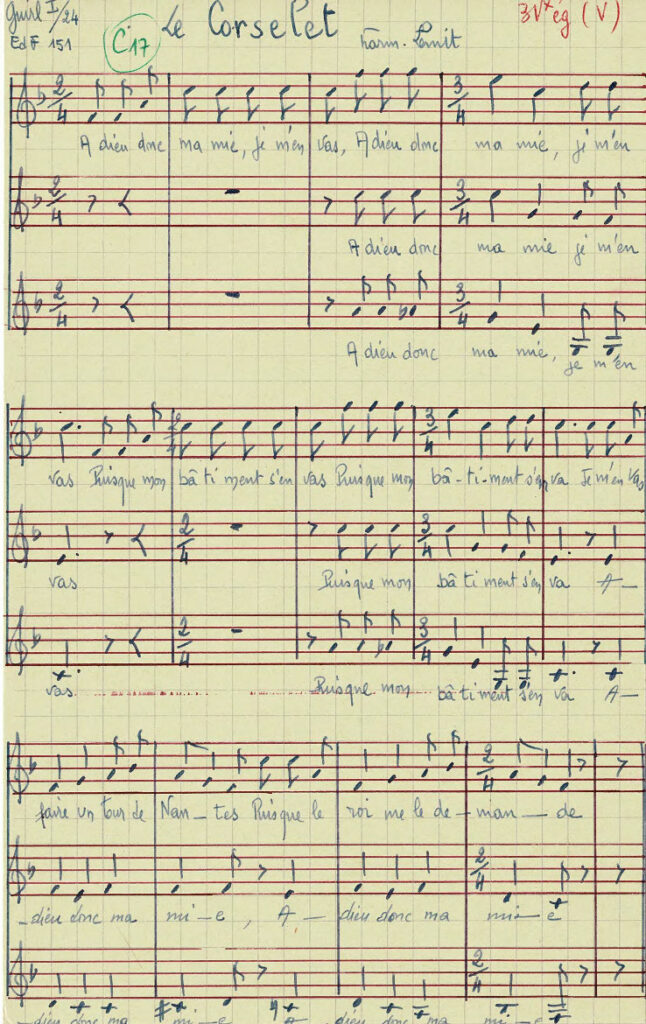 Guirl I/24
Ed F 151
C.17
Le Corselet
harm.
3 Vx ég (V)
2/4 3/4
A dieu donc ma mie, je m'en vas, A dieu donc ma mie, je m'en
2/4 3/4
A dieu donc ma mie je m'en
2/4 3/4
A dieu donc ma mie, je m'en
2/4 3/4
vas Puisque mon bâ ti ment s'en vas Puisque mon bâ - ti - ment s'en va Je m'en vas
2/4 3/4
vas Puisque mon bâ ti ment s'en va A -
2/4 3/4
vas Puisque mon bâ ti ment s'en va A -
2/4
faire un tour de Nan - tes Puisque le roi me le de - man - de
2/4
- dieu donc ma mi - e, A - dieu donc ma mi - e
2/4
- dieu donc ma mi - e A - dieu donc ma mi - e